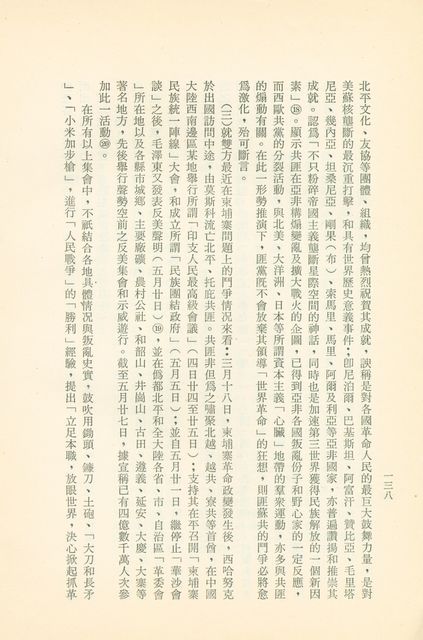 一三八
北平文化、友協等團體、組織，均曾熱烈祝賀其成就，誤稱是對各國革命人民的最巨大鼓舞力量，是對
美蘇核壟斷的最沉重打擊，和具有世界歷史意義事件；卽尼泊爾、巴基斯坦、阿富汗、贊比亞、毛里塔
尼亞、幾內亞、坦桑尼亞、剛果（布）、索馬里、馬里、阿爾及利亞等亞非國家，亦普遍讚揚和推崇其
成就。認爲「不只粉碎帝國主義壟斷星際空間的神話，同時也是加速第三世界獲得民族解放的一個新因
素」⑱。顯示共匪在亞非構煽變亂及擴大戰火的企圖，已得到亞非各國叛亂份子和野心家的一定反應，
而西歐共黨的分裂活動，與北美、大洋洲、日本等所謂資本主義「心臟」地帶的羣衆運動，亦多與共匪
的煽動有關。在此一形勢推演下，匪黨旣不會放棄其領導「世界革命」的狂想，則匪蘇共的鬥爭必將愈
爲激化，殆可斷言。
（二）就雙方最近在柬埔寨問題上的鬥爭情況來看：三月十八日，柬埔寨革命政變發生後，西哈努克
於出國訪問中途，由莫斯科流亡北平、托庇共匪。共匪非但爲之嘯聚北越、越共、寮共等首酋，在中國
大陸西南邊區某地舉行所謂「印支人民最高級會議」（四月廿四至廿五日）；支持其在平召開「柬埔寨
民族統一陣線」大會，和成立所謂「民族團結政府」（五月五日）；並自五月廿一日，繼停止「華沙會
談」之後，毛澤東又發表反美聲明（五月廿日）⑲，並在僞都北平和全大陸各省、市、自治區「革委會
」所在地以及各縣市城鄉、主要廠礦、農村公社、和韶山、井崗山、古田、遵義、延安、大慶、大寨等
著名地方，先後舉行聲勢空前之反美集會和示威遊行。截至五月廿七日，據宣稱已有四億數千萬人次參
加此一活動⑳。
在所有以上集會中，不祇結合各地具體情况與叛亂史實，鼓吹用鋤頭、鐮刀、土砲、「大刀和長矛
」、「小米加步槍」，進行「人民戰爭」的「勝利」經驗，提出「立足本職，放眼世界，決心掀起抓革